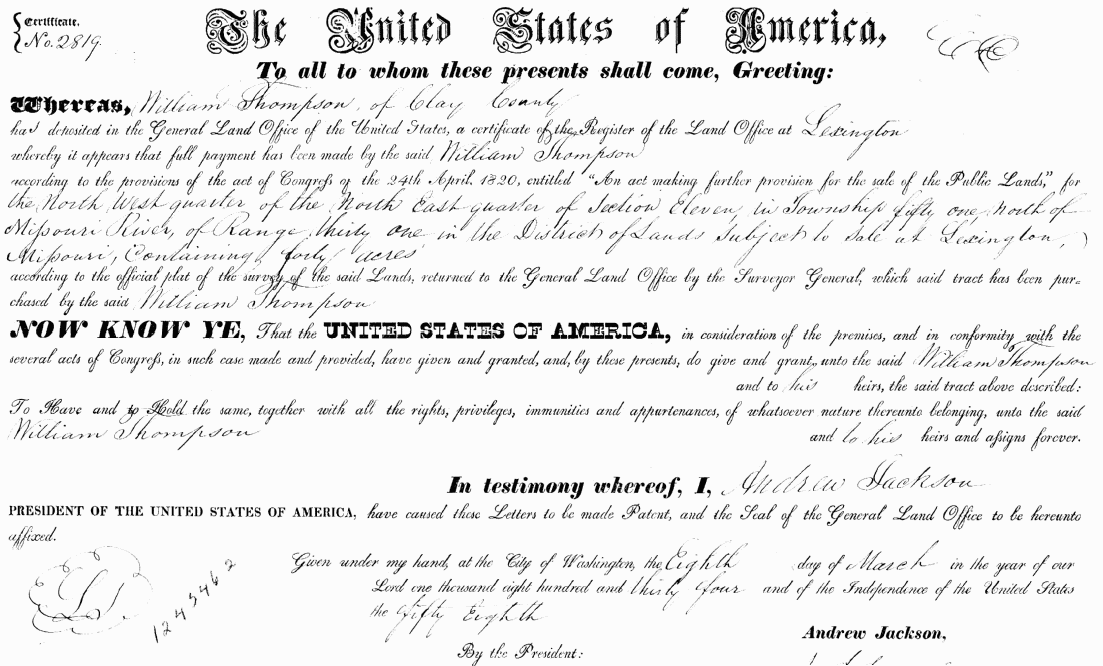 Certificate.
No. 2819.
The United States of America,
To all to whom these presents shall come, Greeting:
Whereas, William Thompson, of Clay County
has deposited in the General Land Office of the United States, a certificate of the Register of the Land Office at Lexington
whereby it appears that full payment has been made by the said William Thompson
according to the provisions of the act of Congress of the 24th April, 1820, entitled "An act making further provision for the sale of the Public Lands," for
the North West quarter of the North East quarter of Section Eleven, in Township fifty one, North of
Missouri River, of Range thirty one in the District of Lands Subject to Sale at Lexington,
Missouri, Containing forty acres
according to the official plat of the survey of the said Lands, returned to the General Land Office by the Surveyor General, which said tract has been pur-
chased by the said William Thompson
NOW KNOW YE, That the UNITED STATES OF AMERICA, in consideration of the premises, and in conformity with the
several acts of Congress, in such case made and provided, have given and granted, and, by these presents, do give and grant, unto the said William Thompson
and to his heirs, the said tract above described:
To Have and to Hold the same, together with all the rights, privileges, immunities and appurtenances, of whatsoever nature thereunto belonging, unto the said
William Thompson and to his heirs and assigns forever.
In testimony whereof, I, Andrew Jackson
PRESIDENT OF THE UNITED STATES OF AMERICA, have caused these Letters to be made Patent, and the Seal of the General Land Office to be hereunto
affixed.
Given under my hand, at the City of Washington, the Eighth day of March in the year of our
Lord one thousand eight hundred and thirty four and of the Independence of the United States
the fifty Eighth
124546 2
Andrew Jackson,
By the President: